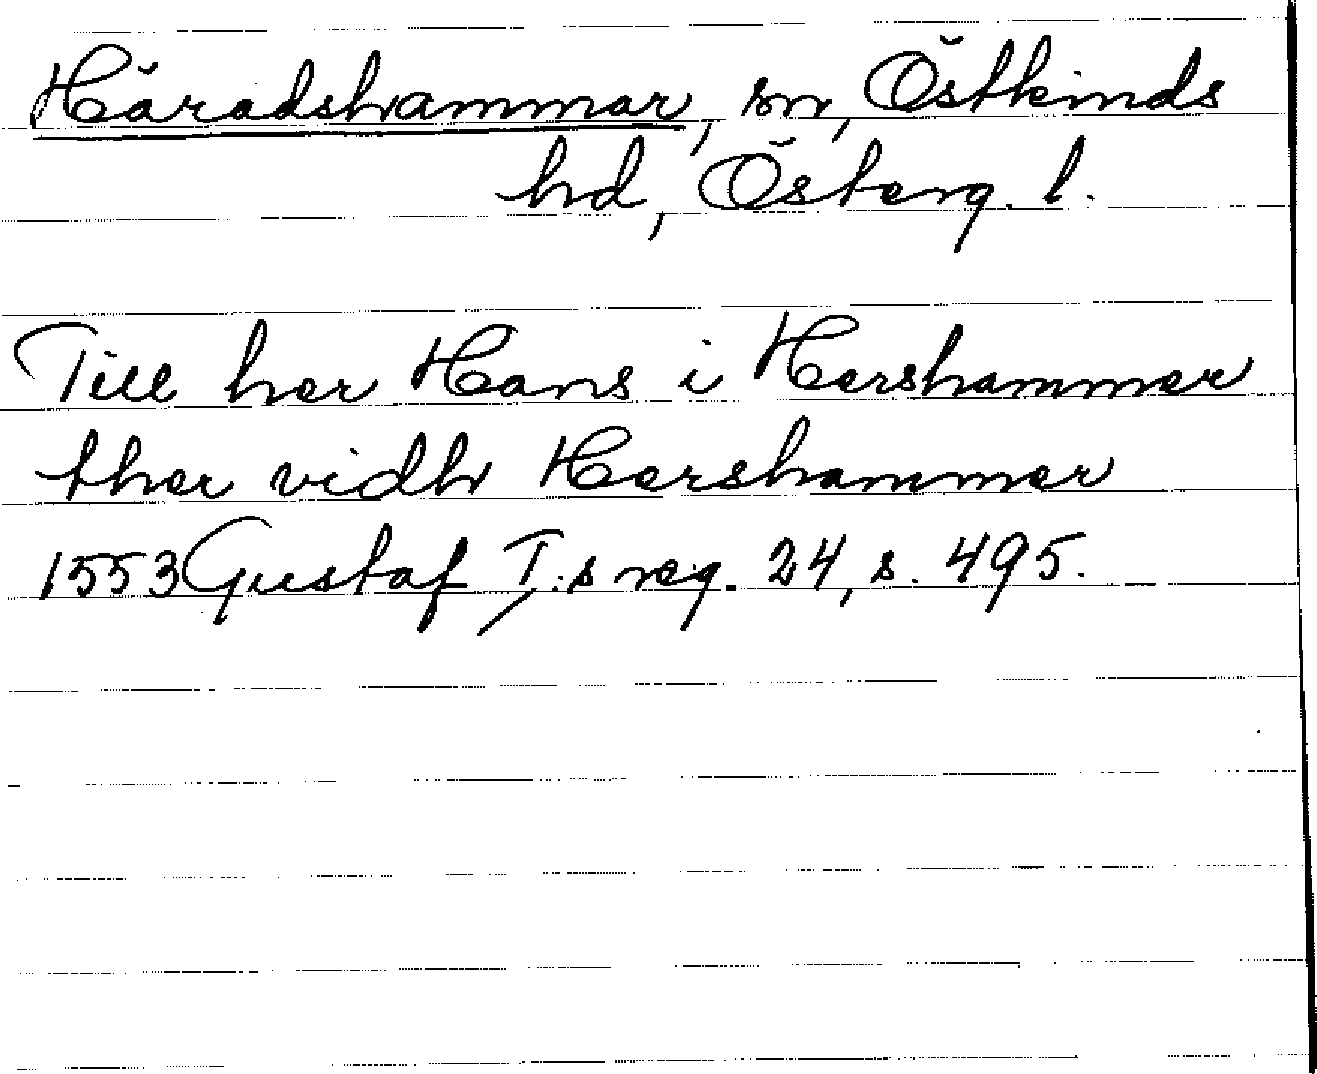 Häradshammar, sn, Östkinds
hd, Österg. l.
Till her Hans i Hershammer
ther vidh Hershammer
1553 Gustaf I:s reg. 24, s. 495.